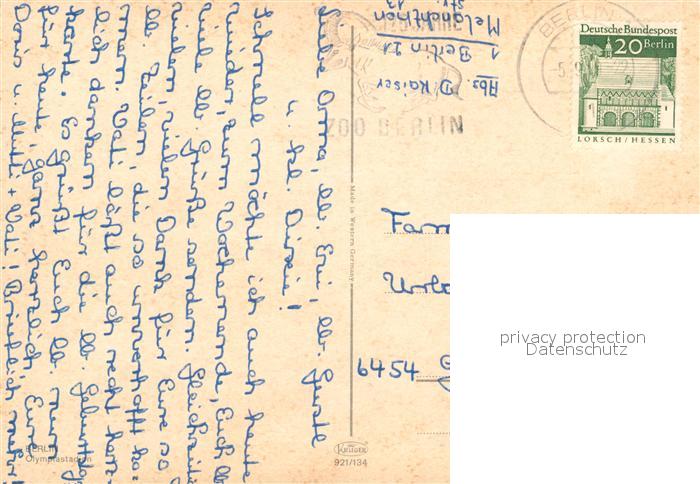 Liebe Oma, lb. Erni, lb. Gustl
u. kl.
Schnell möchte ich auch heute
wieder, zum Wochenende, Euch lb.
viele lb. Grüße senden. Gleichzeitig
vielen, vielen Dank für Eure so
lb. Zeilen, die so unverhofft ka-
men. Vati läßt auch recht herz-
lich danken für die lb. Geburtstags
karte. Es grüßt Euch lb. nun
für heute, ganz herzlich, Eure
Doris u. Mutti + Vati! Brieflich mehr!
Abs. D. Kaiser
1 Berlin 21
Melanchthon
str. 13
ZOO BERLIN
BERLIN
Deutsche Bundespost
20 Berlin
LORSCH/HESSEN
Fam
6454
Made in Western Germany
KRÜGER
921/134
BERLIN
Olympiastadion
privacy protection
Datenschutz